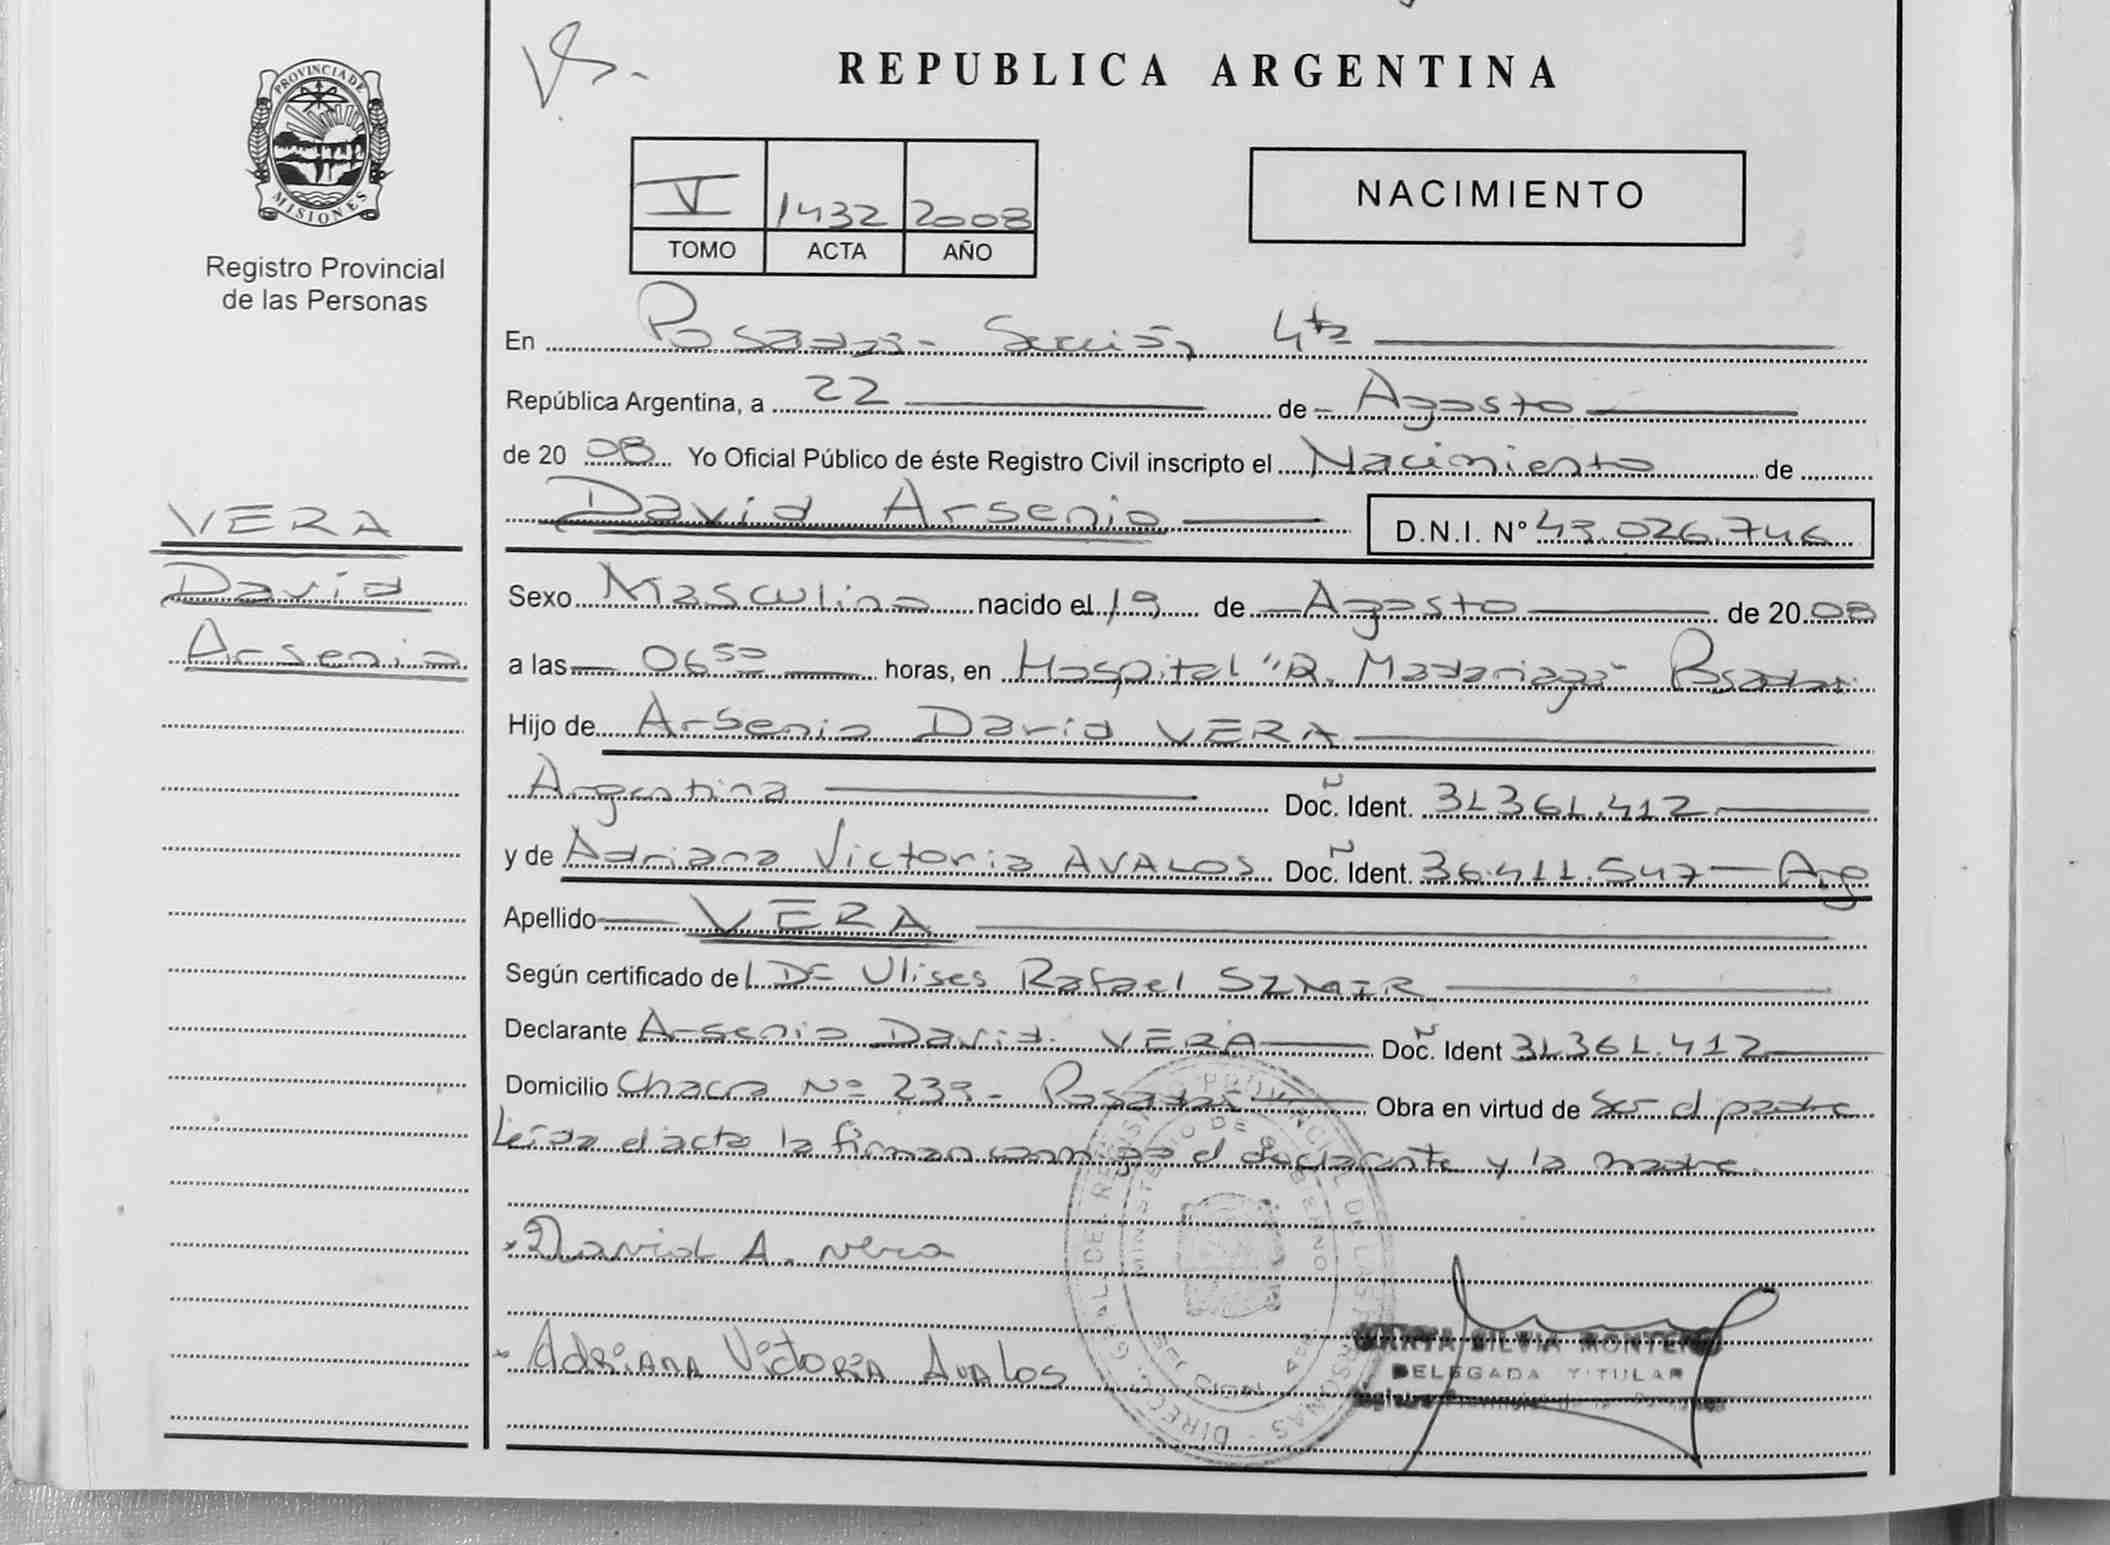 REPUBLICA ARGENTINA
PROVINCIA DE
MISIONES
Registro Provincial
de las Personas
V 1432 2008
TOMO ACTA AÑO
NACIMIENTO
En Posadas - Sección 4ta
República Argentina, a 22 de Agosto
de 2008 Yo Oficial Público de éste Registro Civil inscripto el Nacimiento de
David Arsenio D.N.I. Nº 43.026.746
VERA
David
Arsenio
Sexo Masculino nacido el 19 de Agosto de 2008
a las 06 50 horas, en Hospital "R. Madariaga" Posadas
Hijo de Arsenio David VERA
Argentina Doc. Ident. 31.361.412
y de Adriana Victoria AVALOS Doc. Ident. 36.411.547 - Arg
Apellido VERA
Según certificado de Dr Ulises Rafael SZMIR
Declarante Arsenio David VERA Doc. Ident 31.361.412
Domicilio Chacra Nº 239 - Posadas Obra en virtud de Ser el padre
Leida el acta la firman conmigo el declarante y la madre.
David A. Vera
Adriana Victoria Avalos
SILVIA
DELEGADA TITULAR
DIREC. GRAL. DEL REGISTRO PROVINCIAL DE LAS PERSONAS
MINISTERIO DE GOBIERNO